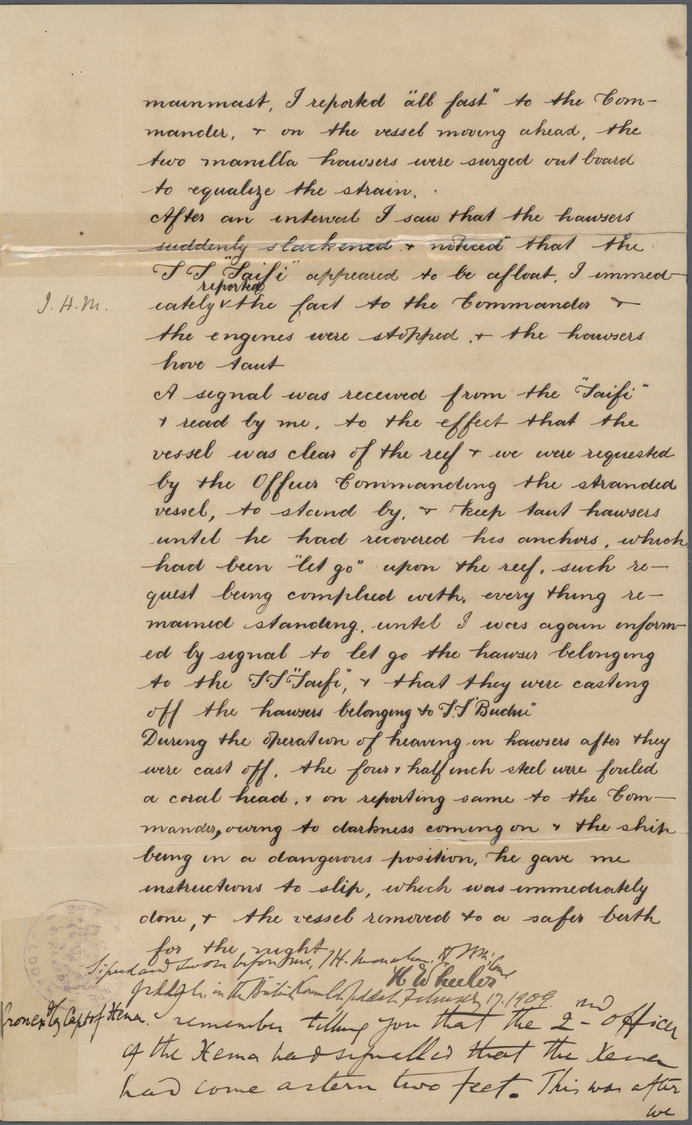 mainmast, I reported "all fast" to the Com-
mander, & on the vessel moving ahead, the
two manilla hawsers were surged outboard
to equalize the strain.
After an interval I saw that the hawsers
suddenly slackened & noticed that the
S.S. "Saifi" appeared to be afloat, I immed-
reported
I.H.M.
iately & the fact to the Commander &
the engines were stopped, & the hawsers
hove taut
A signal was received from the "Saifi"
& read by me, to the effect that the
vessel was clear of the reef & we were requested
by the Officer Commanding the stranded
vessel, to stand by, & keep taut hawsers
until he had recovered his anchors, which
had been "let go" upon the reef, such re-
quest being complied with, every thing re-
mained standing, until I was again inform-
ed by signal to let go the hawser belonging
to the S.S "Saifi", & that they were casting
off the hawsers belonging to S.S "Budri"
During the operation of heaving in hawsers after they
were cast off, the four & half inch steel were fouled
a coral head, & on reporting same to the Com-
mander, owing to darkness coming on & the ship
being in a dangerous position, he gave me
instructions to slip, which was immediately
done, & the vessel removed to a safer berth
for the night
Signed and sworn before me, J.H. Monahan, H.M.
H Wheeler
in the British Consulate Jeddah February 17. 1909.
by Capt of Xema. remember telling you that the 2nd Officer
of the Xema had signalled that the Xema
had come astern two feet. This was after
we